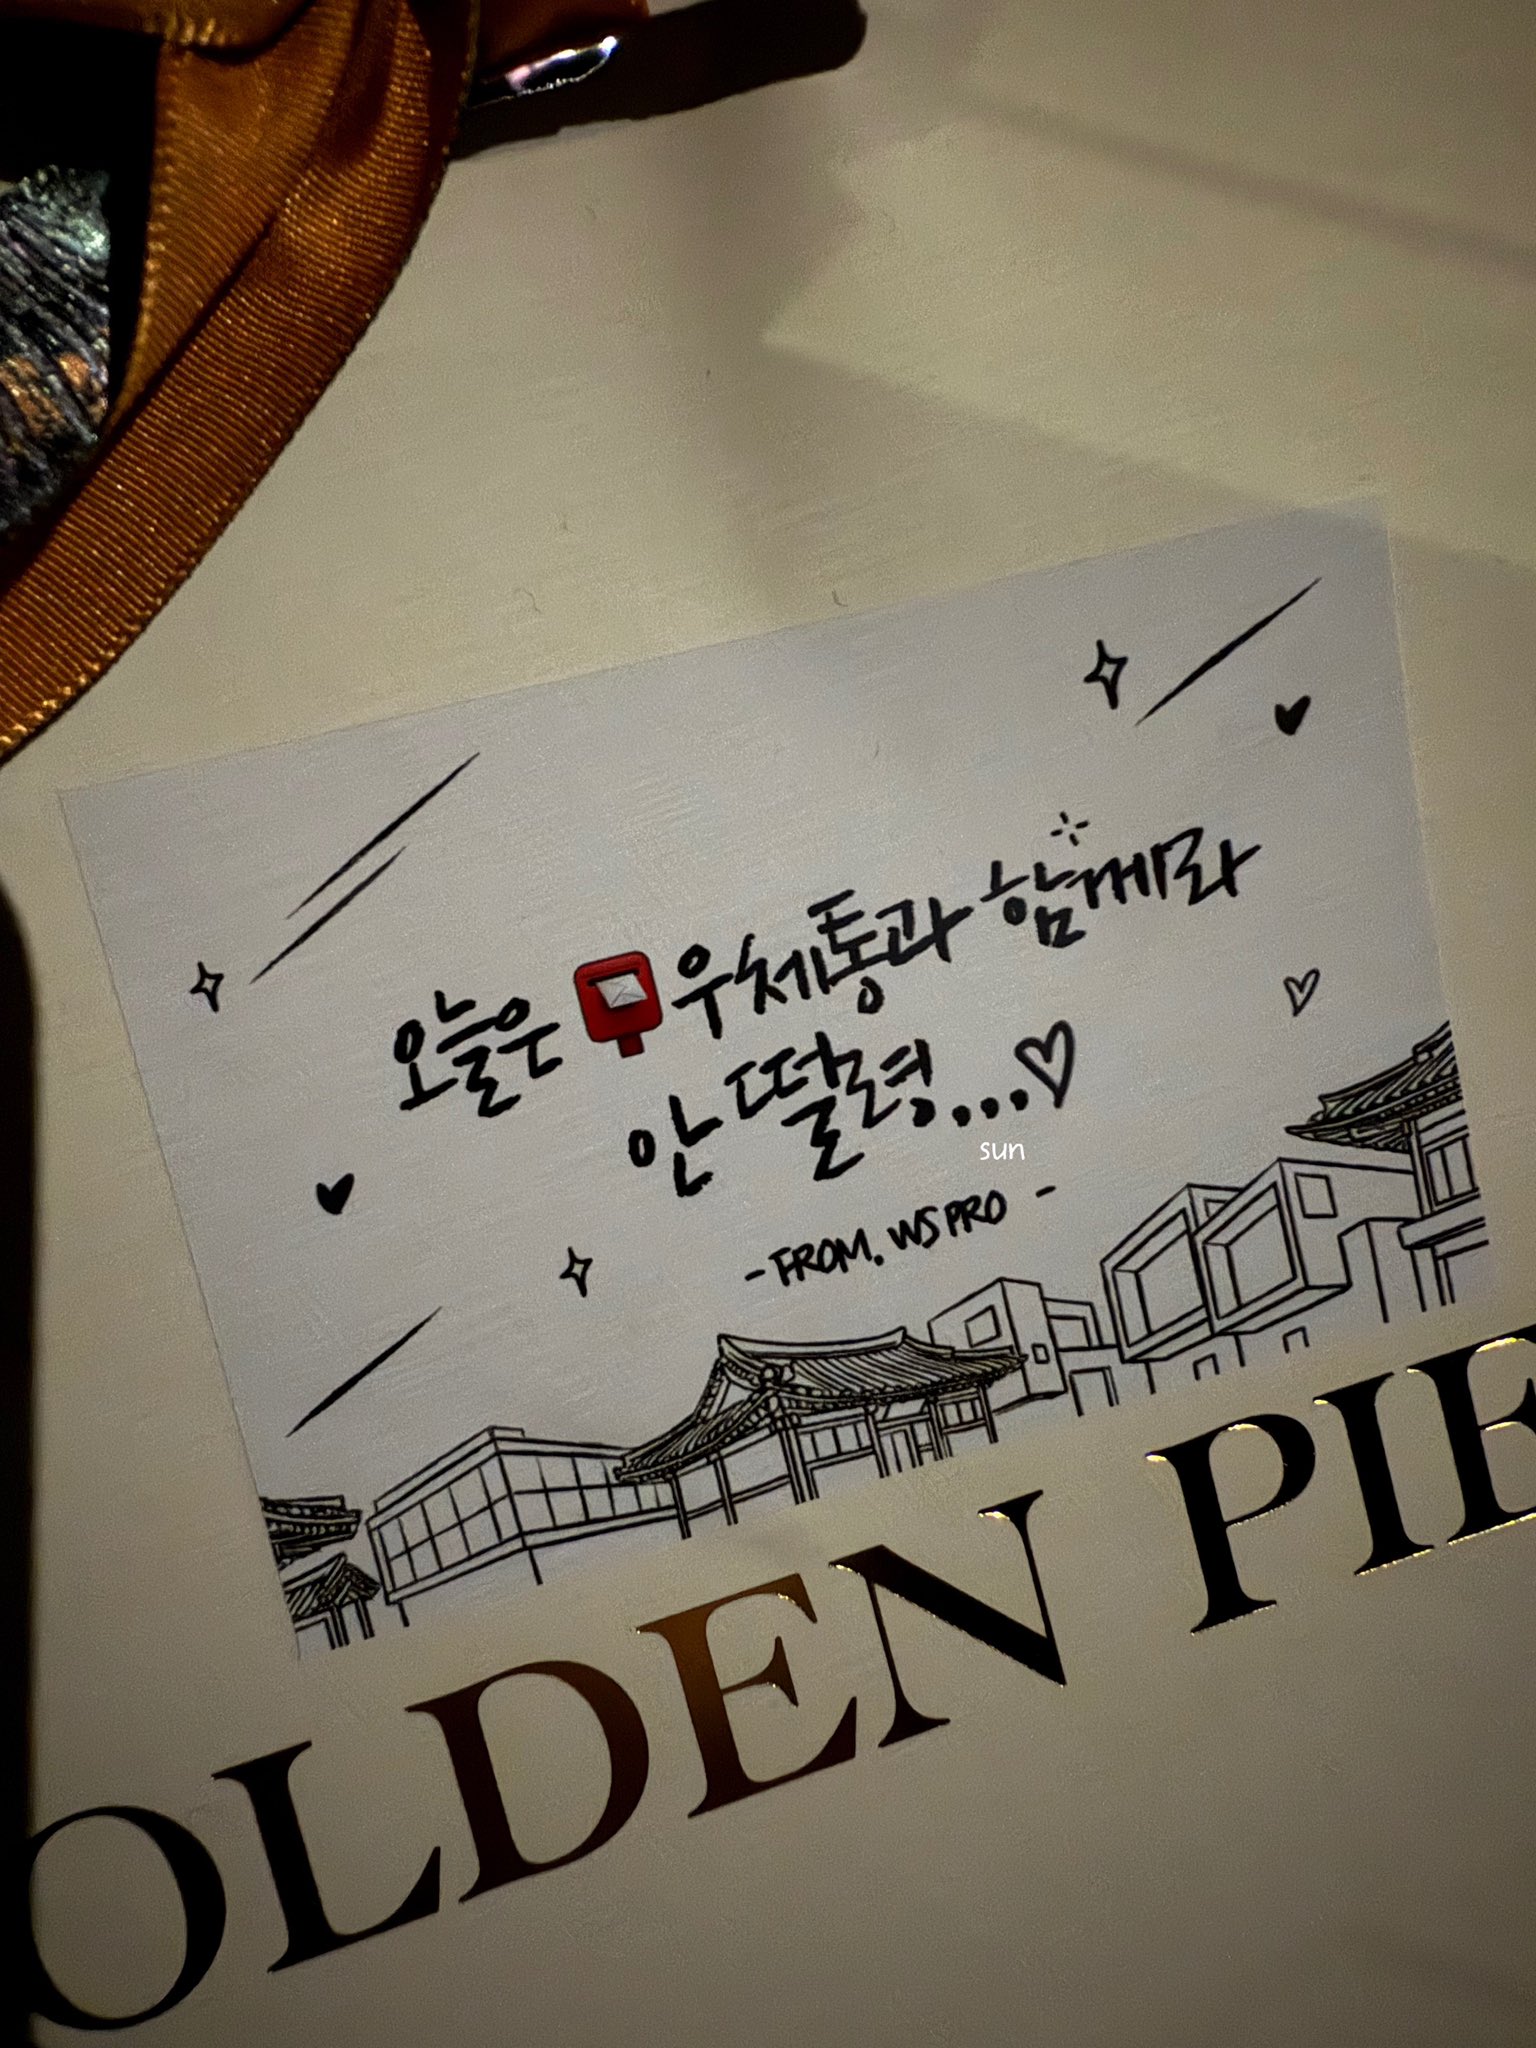 오늘은 우체통과 함께라
안 떨령...♡
sun
-FROM. WSPRO -
OLDEN PIE